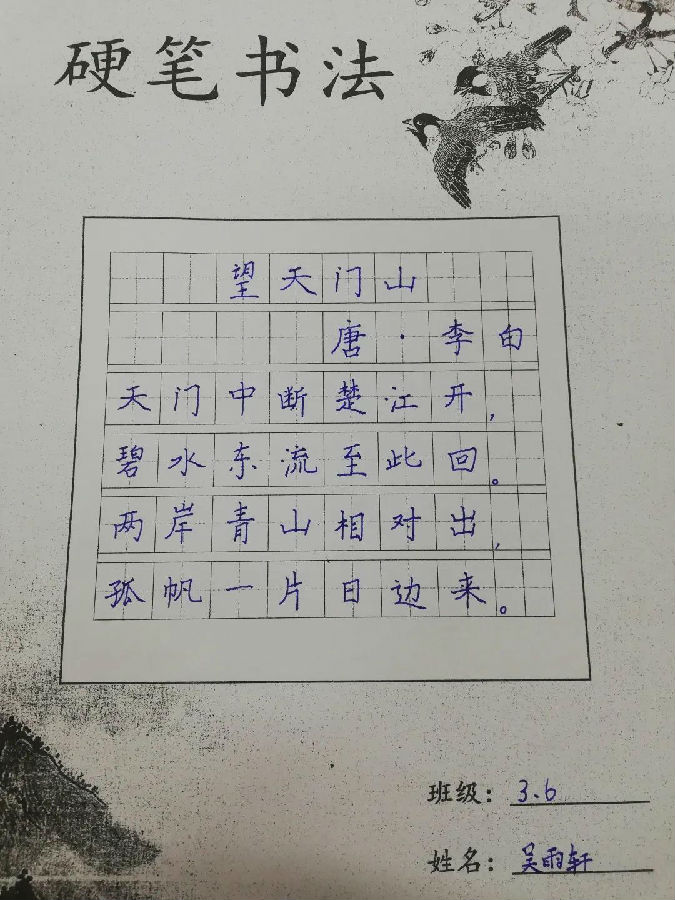 硬笔书法
望天门山
唐·李白
天门中断楚江开，
碧水东流至此回。
两岸青山相对出，
孤帆一片日边来。
班级：3.6
姓名：吴雨轩